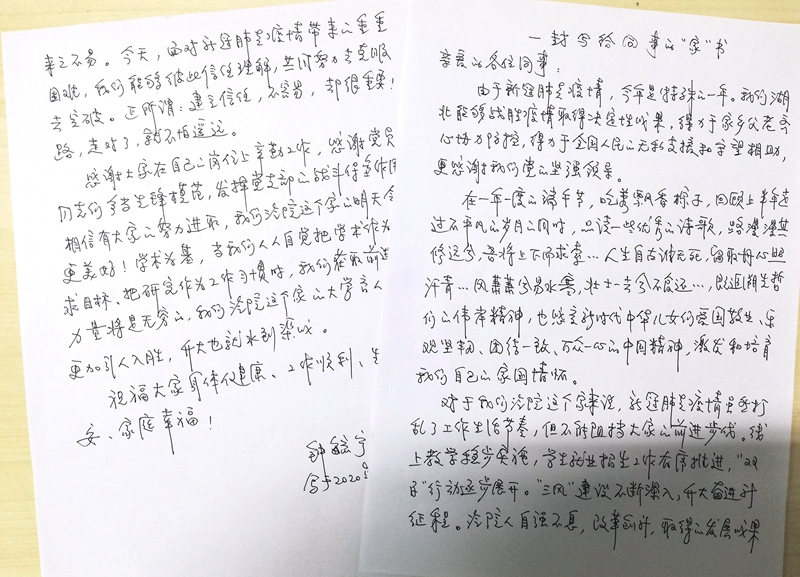 一封写给同事的“家”书
亲爱的各位同事：
由于新冠肺炎疫情，今年是特殊的一年。我们湖
北能够战胜疫情取得决定性成果，得力于家乡父老齐
心协力防控，得力于全国人民的无私支援和守望相助，
更感谢我们党的坚强领导。
在一年一度的端午节，吃着飘香粽子，回顾上半年走
过不平凡的岁月的同时，品读一些优秀的诗歌，路漫漫其
修远兮，吾将上下而求索…人生自古谁无死，留取丹心照
汗青…风萧萧兮易水寒，壮士一去兮不复还…，既追溯先哲
们的伟岸精神，也感受新时代中华儿女们爱国敬业、乐
观坚韧、团结一致、万众一心的中国精神，激发和培育
我们自己的家国情怀。
对于我们法院这个家来说，新冠肺炎疫情虽然打
乱了工作生活节奏，但不能阻挡大家的前进步伐。线
上教学稳步实施，学生就业招生工作有序推进，“双
百”行动逐步展开。“三风”建设不断深入，升大奋进计
征程。法院人自强不息，改革创新，取得的发展成果
来之不易。今天，面对新冠肺炎疫情带来的重重
困难，我们能够彼此信任理解，共同努力去克服
去突破。正所谓：建立信任，不容易，却很重要！
路，走对了，就不怕遥远。
感谢大家在自己的岗位上辛勤工作，感谢党员
同志们争当先锋模范，发挥党支部的战斗堡垒作用
相信有大家的努力进取，我们法院这个家的明天会
更美好！学术为基，当我们人人自觉把学术作为
求目标、把研究作为工作习惯时，我们奋取前进
力量将是无穷的，我们法院这个家的大学育人
更加引人入胜，升大也就水到渠成。
祝福大家身体健康、工作顺利、生
安、家庭幸福！
写于2020